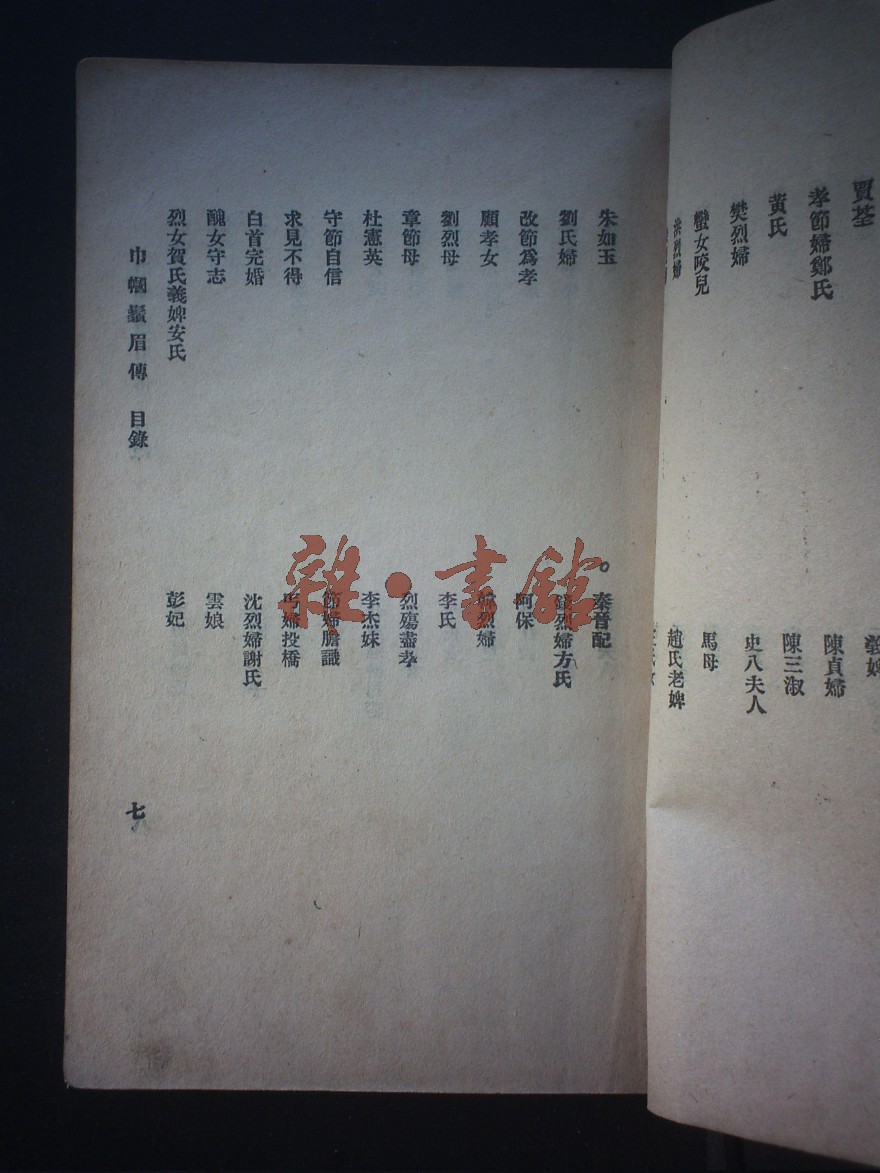 賈荃
孝節婦鄭氏
黃氏
樊烈婦
蠻女咬兒
洪烈婦
陳貞婦
陳三淑
史八夫人
馬母
趙氏老婢
朱如玉
劉氏婦
改節爲孝
顧孝女
劉烈母
章節母
杜憲英
守節自信
求見不得
白首完婚
醜女守志
烈女賀氏義婢安氏
秦晉配
烈婦方氏
阿保
烈婦
李氏
烈殤盡孝
李杰妹
節婦膽識
丐婦投橋
沈烈婦謝氏
雲娘
彭妃
巾幗鬚眉傳 目錄
七
雜·書館